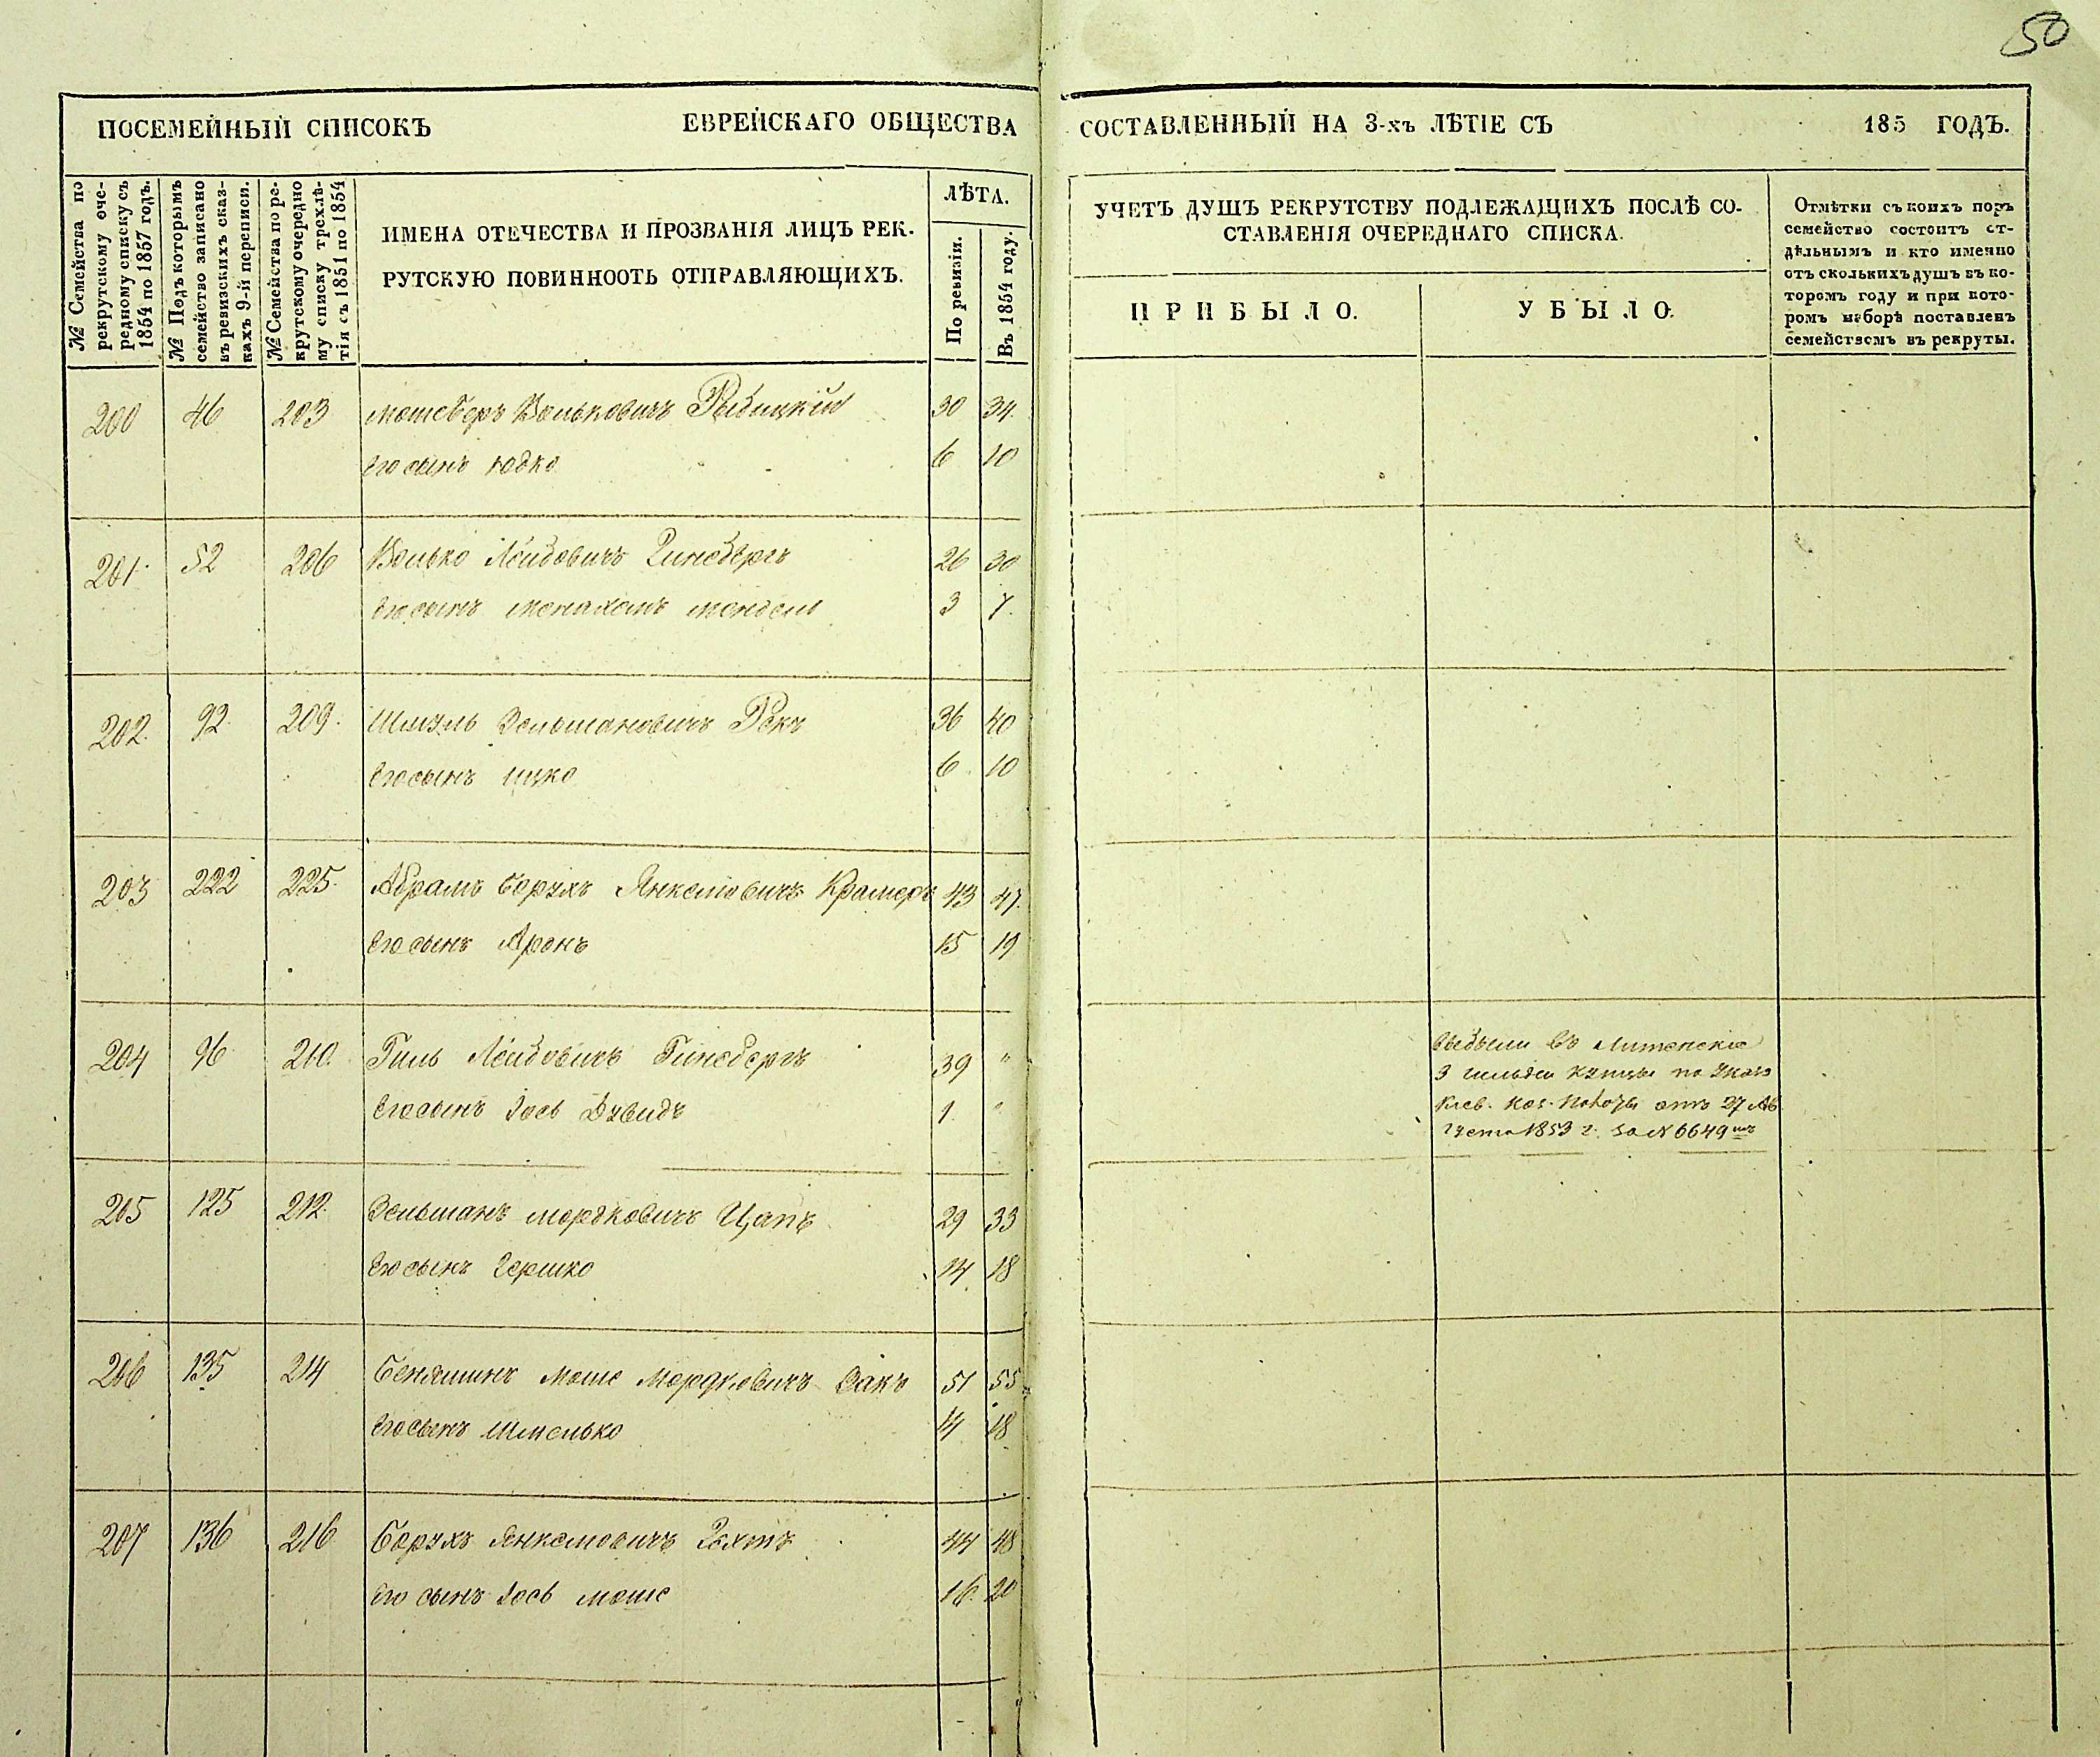 50
ПОСЕМЕЙНЫЙ СПИСОКЪ ЕВРЕЙСКАГО ОБЩЕСТВА СОСТАВЛЕННЫЙ НА 3-хъ ЛѢТІЕ СЪ 185 ГОДЪ.
№ Семейства по
рекрутскому оче-
редному списку съ
1854 по 1857 годъ.
№ Подъ которымъ
семейство записано
въ ревизскихъ сказ-
кахъ 9-й переписи.
№ Семейства по ре-
крутскому очередно
му списку трехлѣ-
тія съ 1851 по 1854
ИМЕНА ОТЕЧЕСТВА И ПРОЗВАНІЯ ЛИЦЪ РЕК.
РУТСКУЮ ПОВИННООТЬ ОТПРАВЛЯЮЩИХЪ.
ЛѢТА.
По ревизіи.
Въ 1854 году.
УЧЕТЪ ДУШЪ РЕКРУТСТВУ ПОДЛЕЖАЩИХЪ ПОСЛѢ СО-
СТАВЛЕНІЯ ОЧЕРЕДНАГО СПИСКА.
ПРИБЫЛО.
УБЫЛО.
Отмѣтки съ коихъ поръ
семейство состоитъ от-
дѣльнымъ и кто именно
отъ сколькихъ душъ въ ко-
торомъ году и при кото-
ромъ наборѣ поставленъ
семействомъ въ рекруты.
200 46 203 Мошеберъ Вольковичъ Рыбицкій 30 34.
Его сынъ Юдко 6 10
201. 52 206 Волько Лейбовичъ Гинсбергъ 26 30
Его сынъ Менахемъ Мендель 3 7.
202. 92. 209. Шмуль Зельмановичъ Рекъ 36 40
Его сынъ Ицко 6. 10
203 222 225. Абрамъ Борухъ Янкелювичъ Крамеръ 43 47.
Его сынъ Аронъ 15 19
204 96 210. Гиль Лейбовичъ Гинсбергъ 39 "
Его сынъ Іось Дувидъ 1. "
Выбыли въ Литенскіе
3 гильдіи купцы по Указу
Кіев. Каз. Палаты отъ 27 Ав
густа 1853 г. за № 6649мъ
205 125 212. Зельманъ Мордковичъ Цапъ 29 33
Его сынъ Гершко 14. 18
206 135 214 Беняминъ Моше Мордковичъ Закъ 51 55
Его сынъ Шмелько 14 18
207 136 216 Борухъ Янкелювичъ Рехтъ 44 48
Его сынъ Іось Моше 16. 20